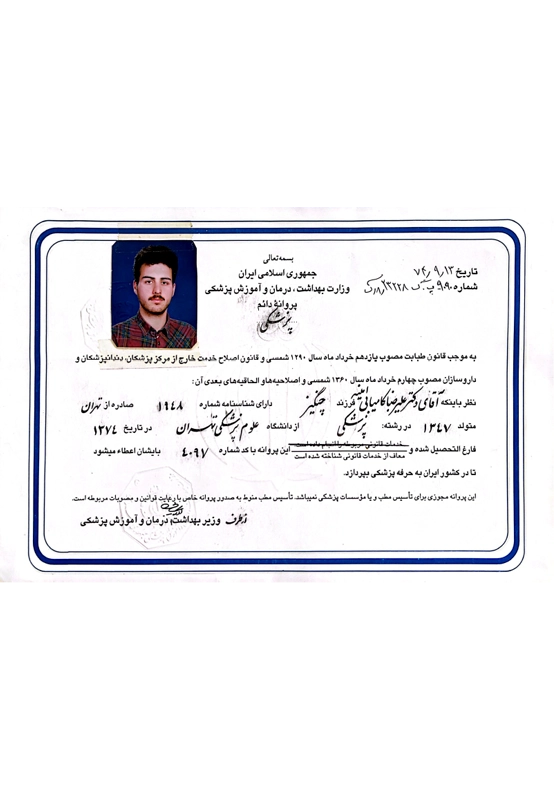 بسمه تعالی
جمهوری اسلامی ایران
وزارت بهداشت، درمان و آموزش پزشکی
پروانه دائم
پزشکی
تاریخ ۷۴٫۹٫۱۳
شماره
به موجب قانون طبابت مصوب یازدهم خرداد ماه سال ۱۲۹۰ شمسی و قانون اصلاح خدمت خارج از مرکز پزشکان، دندانپزشکان و
داروسازان مصوب چهارم خرداد ماه سال ۱۳۶۰ شمسی و اصلاحیه‌ها و الحاقیه‌های بعدی آن:
نظر باینکه آقای دکتر علیرضا کامیابی فرزند چنگیز دارای شناسنامه شماره ۱۹۴۸ صادره از تهران
متولد ۱۳۴۷ در رشته: پزشکی از دانشگاه علوم پزشکی تهران در تاریخ ۱۳۷۴
فارغ التحصیل شده و خدمات قانونی مربوطه را انجام داده است
معاف از خدمات قانونی شناخته شده است این پروانه با کد شماره ۴۰۹۷ بایشان اعطاء میشود
تا در کشور ایران به حرفه پزشکی بپردازد.
این پروانه مجوزی برای تأسیس مطب و یا مؤسسات پزشکی نمیباشد. تأسیس مطب منوط به صدور پروانه خاص با رعایت قوانین و مصوبات مربوطه است.
از طرف وزیر بهداشت، درمان و آموزش پزشکی